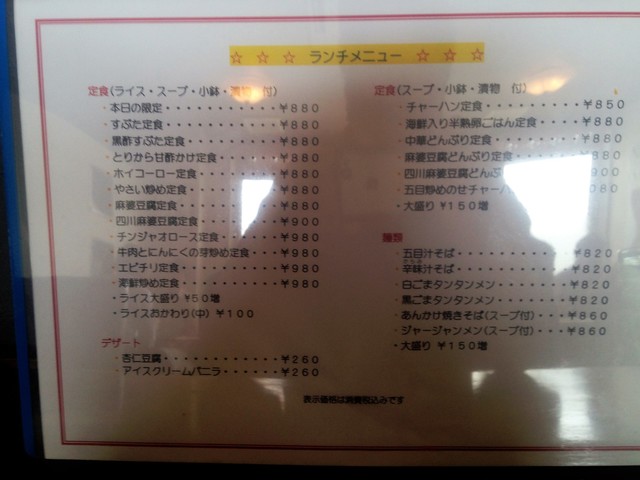 ☆ ☆ ☆ ランチメニュー ☆ ☆ ☆
定食(ライス・スープ・小鉢・漬物 付)
・本日の限定・・・・・・・・・・・・¥880
すぶた定食・・・・・・・・・・・・¥880
・黒酢すぶた定食・・・・・・・・・・¥880
・とりから甘酢かけ定食・・・・・・・¥880
・ホイコーロー定食・・・・・・・・・¥880
・やさい炒め定食・・・・・・・・・・¥880
・麻婆豆腐定食・・・・・・・・・・・¥880
・四川麻婆豆腐定食・・・・・・・・・¥900
・チンジャオロース定食・・・・・・・¥980
・牛肉とにんにくの芽炒め定食・・・・¥980
・エビチリ定食・・・・・・・・・・・¥980
・海鮮炒め定食・・・・・・・・・・・¥980
・ライス大盛り ¥50増
・ライスおかわり(中) ¥100
デザート
・杏仁豆腐・・・・・・・・・・・・¥260
・アイスクリームバニラ・・・・・・¥260
定食(スープ・小鉢・漬物 付)
・チャーハン定食・・・・・・・・・・¥850
・海鮮入り半熟卵ごはん定食・・・・¥880
・中華どんぶり定食・・・・・・・・¥880
・麻婆豆腐どんぶり定食・・・・・・880
・四川麻婆豆腐どんぶ 900
・五目炒めのせチャーハ
・大盛り ¥150増
麺類
・五目汁そば・・・・・・・・・・・¥820
・辛味汁そば・・・・・・・・・・・¥820
・白ごまタンタンメン・・・・・・・¥820
・黒ごまタンタンメン・・・・・・・¥820
・あんかけ焼きそば(スープ付)・・・¥860
・ジャージャンメン(スープ付)・・・¥860
・大盛り ¥150増
表示価格は消費税込みです